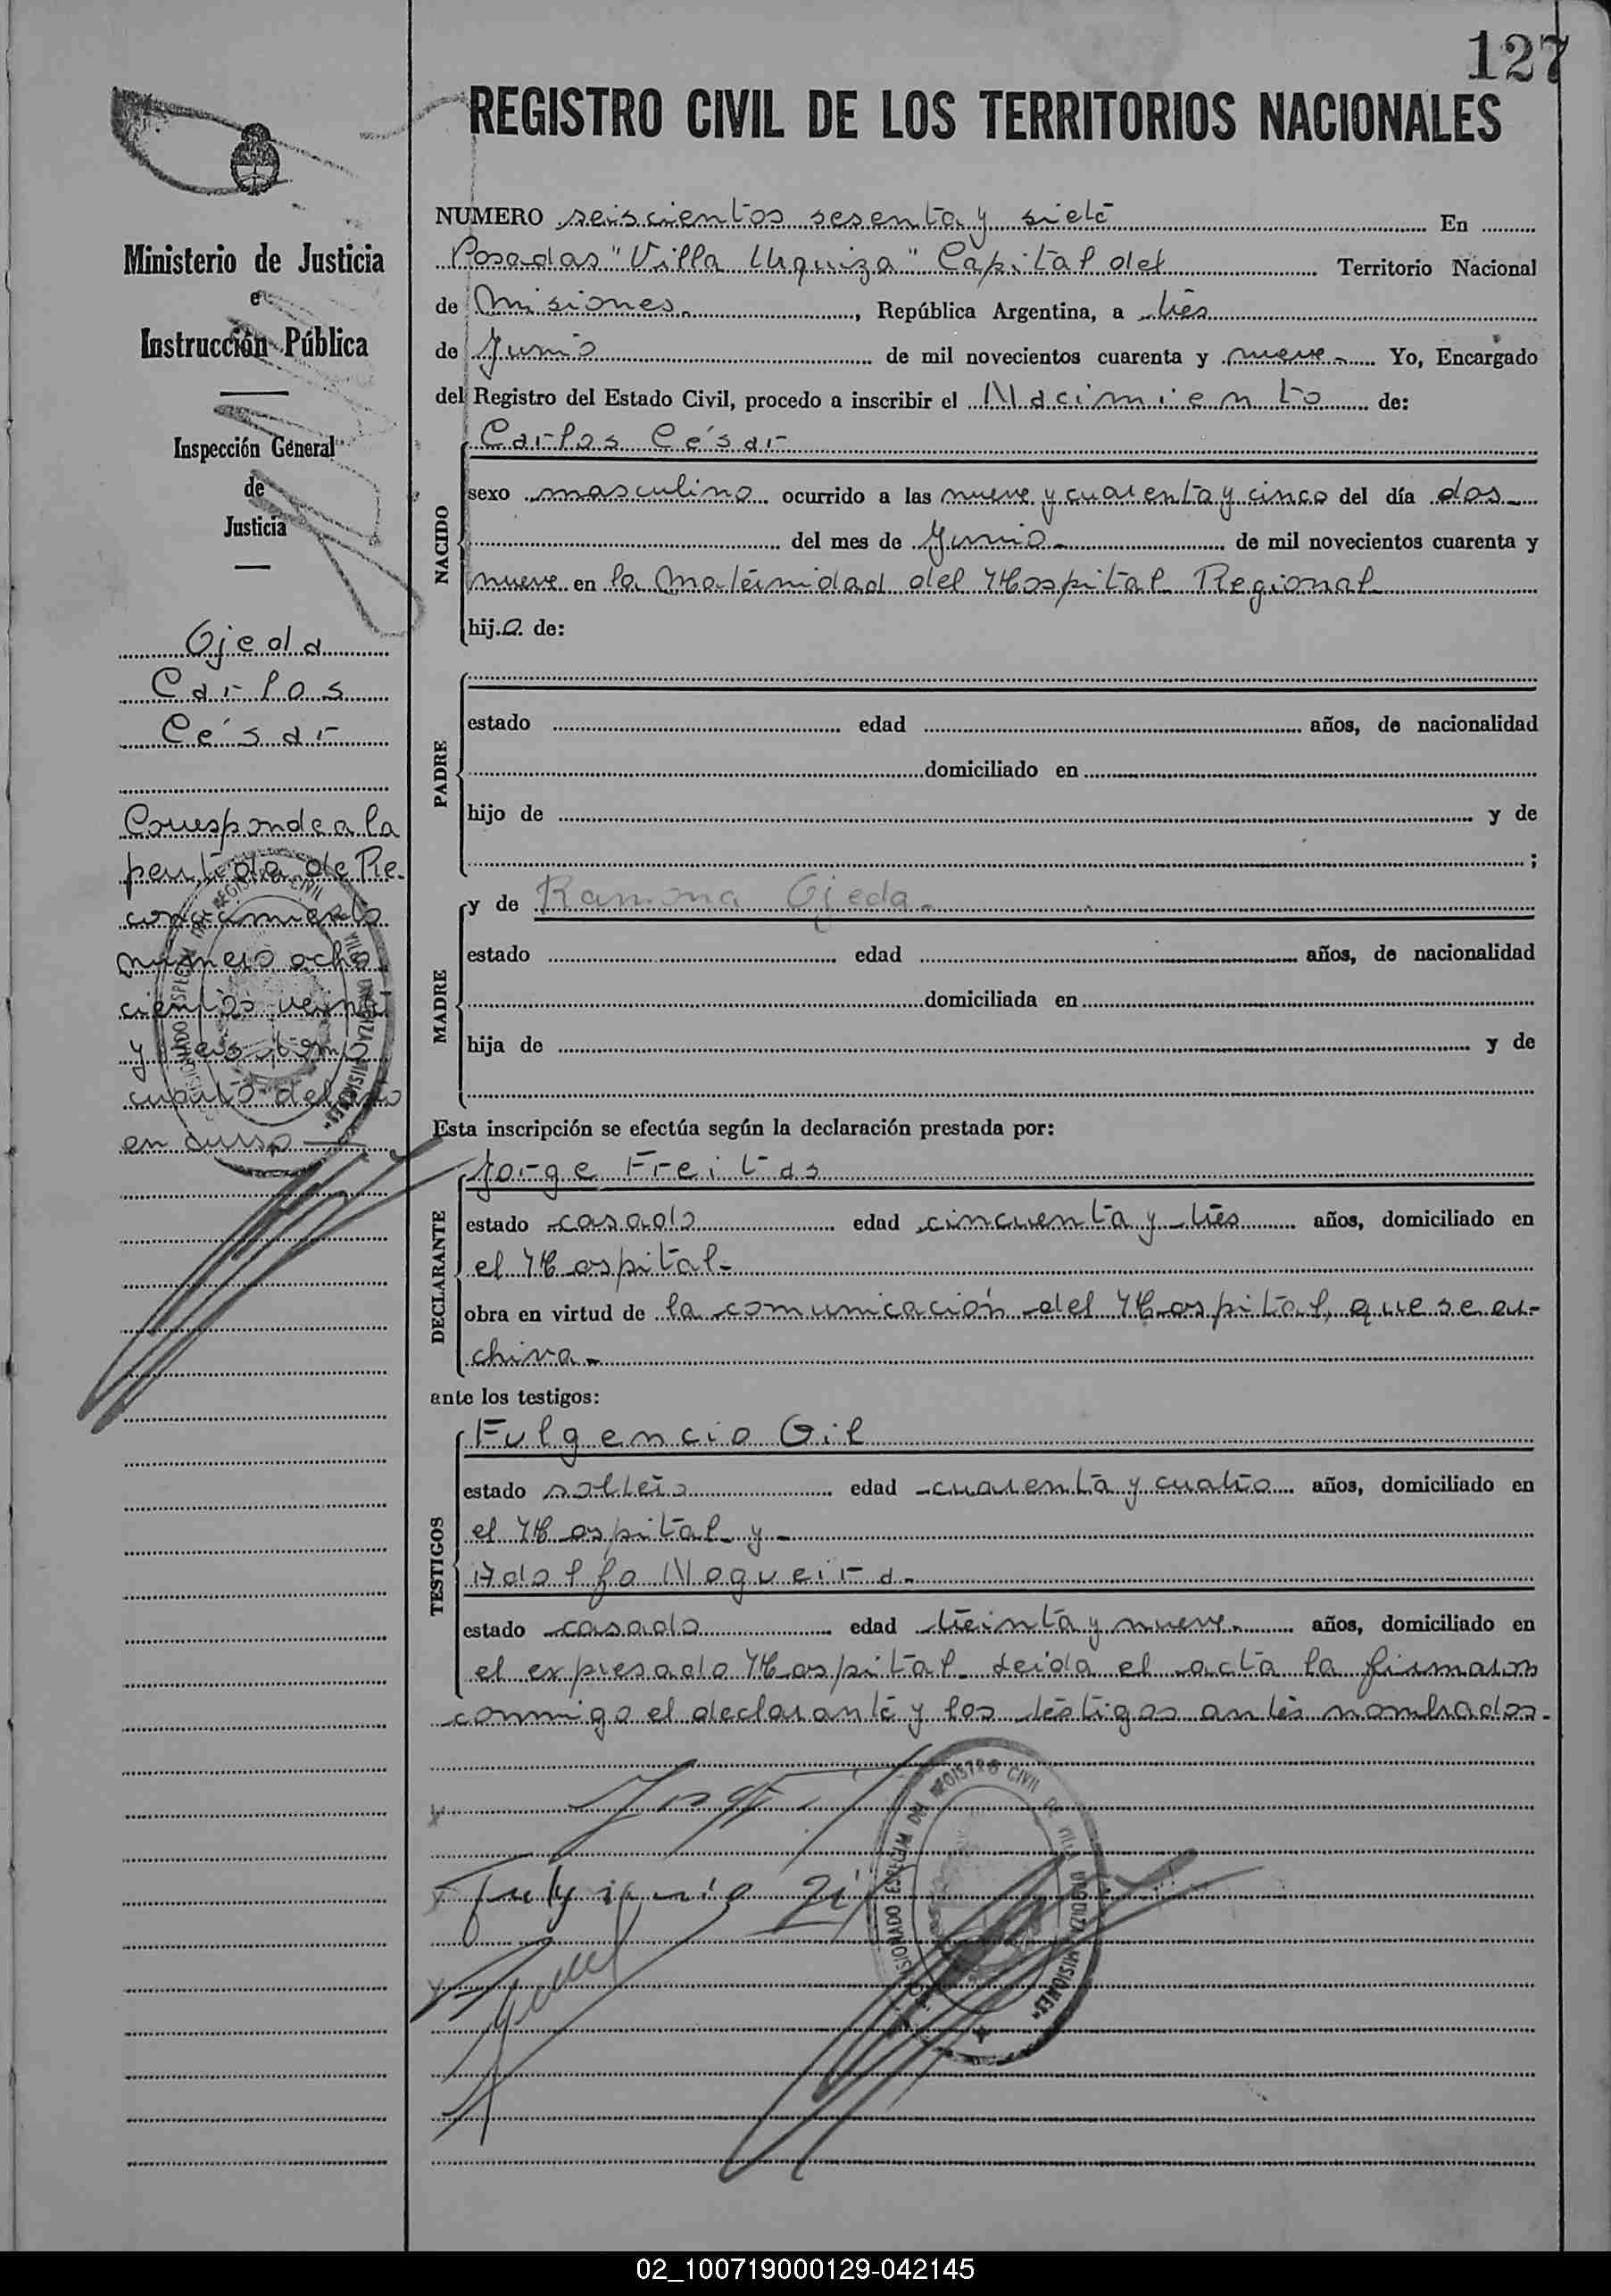 127
REGISTRO CIVIL DE LOS TERRITORIOS NACIONALES
Ministerio de Justicia
e
Instrucción Pública
Inspección General
de
Justicia
Ojeda
Carlos
César
Corresponde a la
partida de Re-
conocimiento
número ocho
cientos veinti
y seis tomo
cuarto del año
en curso
NUMERO seiscientos sesenta y siete En
Posadas "Villa Urquiza" Capital del Territorio Nacional
de Misiones, República Argentina, a tres
de Junio de mil novecientos cuarenta y nueve Yo, Encargado
del Registro del Estado Civil, procedo a inscribir el Nacimiento de:
Carlos César
NACIDO
sexo masculino ocurrido a las nueve y cuarenta y cinco del día dos
del mes de Junio de mil novecientos cuarenta y
nueve en la Maternidad del Hospital Regional
hijo de:
PADRE
estado edad años, de nacionalidad
domiciliado en
hijo de y de
;
MADRE
y de Ramona Ojeda
estado edad años, de nacionalidad
domiciliada en
hija de y de
Esta inscripción se efectúa según la declaración prestada por:
DECLARANTE
Jorge Freitas
estado casado edad cincuenta y tres años, domiciliado en
el Hospital
obra en virtud de la comunicación del Hospital, que se ar-
chiva
ante los testigos:
TESTIGOS
Fulgencio Gil
estado soltero edad cuarenta y cuatro años, domiciliado en
el Hospital y
Adolfo Nogueira
estado casado edad treinta y nueve años, domiciliado en
el expresado Hospital. Leida el acta la firmaron
conmigo el declarante y los testigos antes nombrados.
REGISTRO CIVIL
MISIONES
02_100719000129-042145